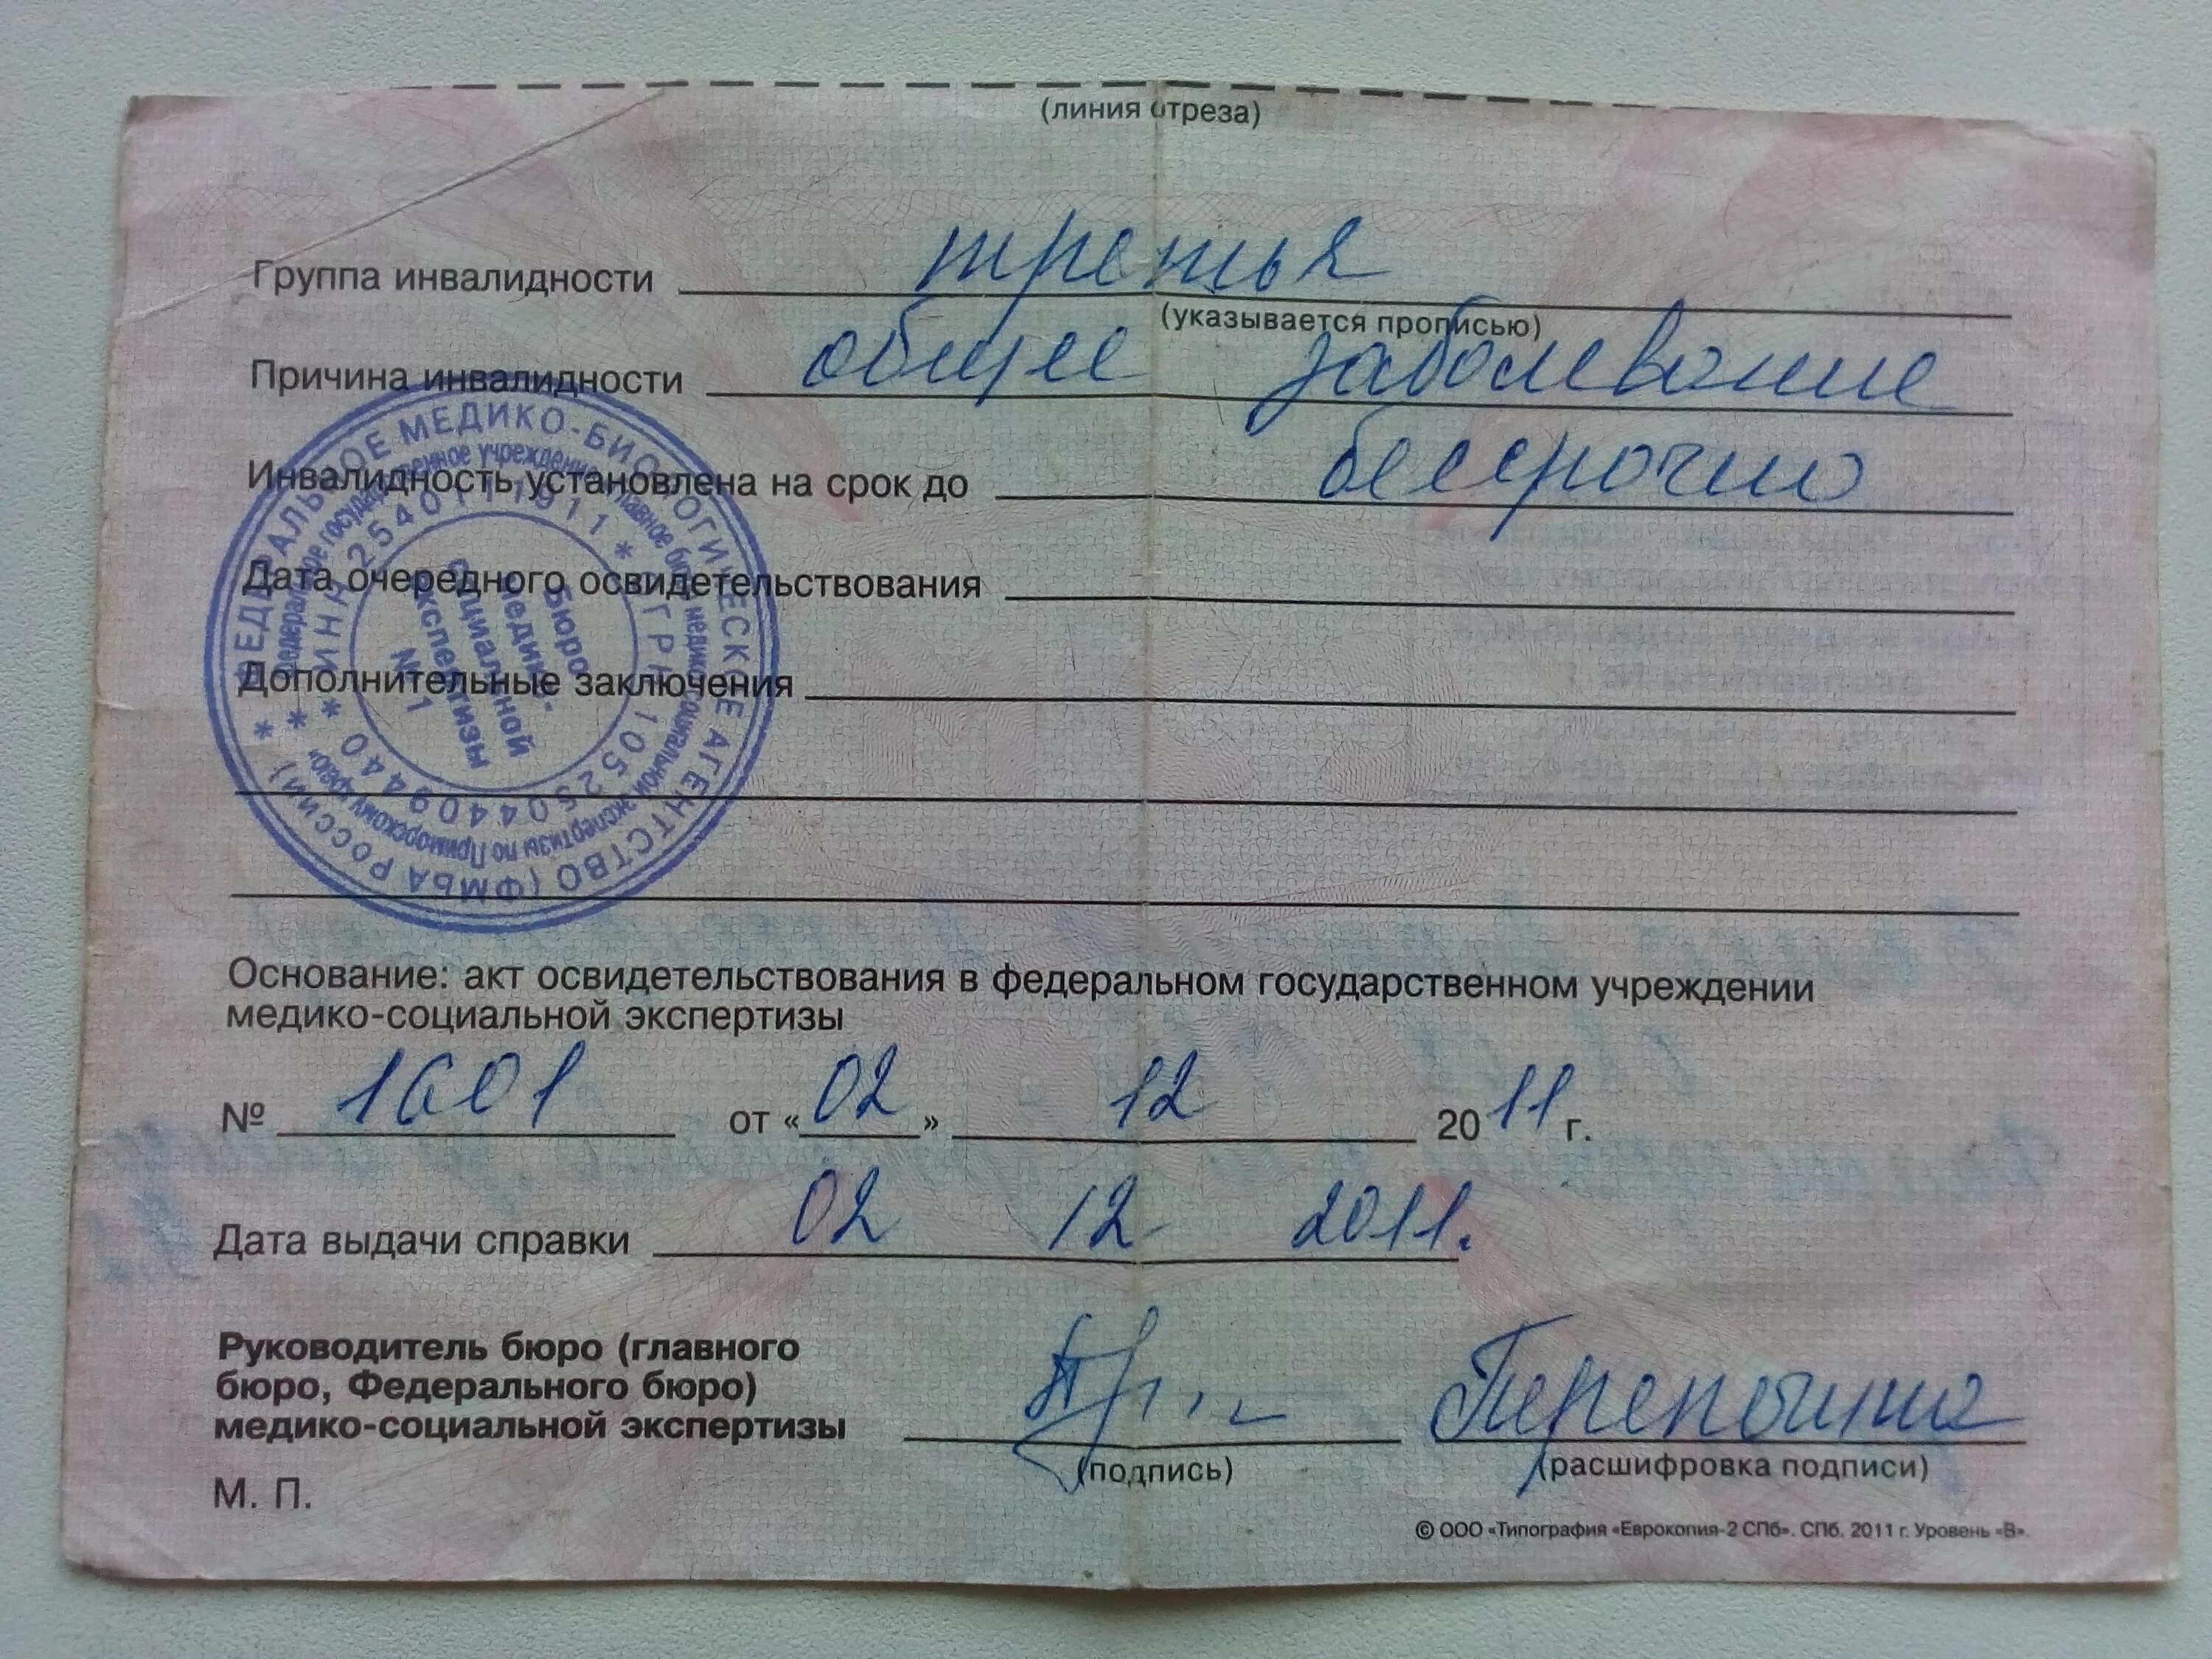 (линия отреза)
Группа инвалидности третья
(указывается прописью)
Причина инвалидности общее заболевание
Инвалидность установлена на срок до бессрочно
Дата очередного освидетельствования
Дополнительные заключения
ФЕДЕРАЛЬНОЕ МЕДИКО-БИОЛОГИЧЕСКОЕ АГЕНТСТВО (ФМБА РОССИИ) *
Федеральное государственное учреждение «Главное бюро медико-социальной экспертизы по Приморскому краю» *
Бюро
медико-
социальной
экспертизы
№ 1
Основание: акт освидетельствования в федеральном государственном учреждении
медико-социальной экспертизы
№ 1601 от «02» 12 2011 г.
Дата выдачи справки 02 12 2011.
Руководитель бюро (главного
бюро, Федерального бюро)
медико-социальной экспертизы
(подпись) (расшифровка подписи)
М. П.
© ООО «Типография «Еврокопия-2 СПб». СПб. 2011 г. Уровень «В».